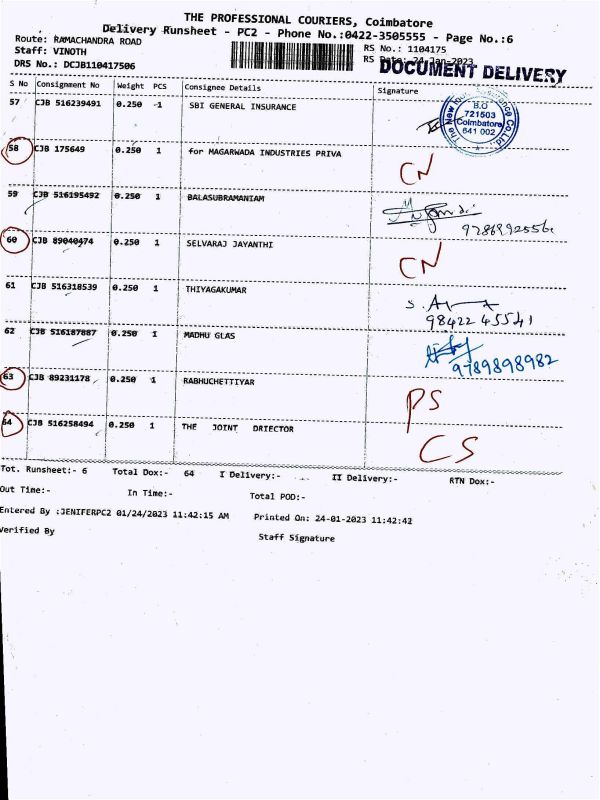 THE PROFESSIONAL COURIERS, Coimbatore
Delivery Runsheet - PC2 - Phone No.:0422-3505555 - Page No.:6
Route: RAMACHANDRA ROAD
RS No.: 1104175
Staff: VINOTH
RS Date: 24-Jan-2023
DRS No.: DCJB110417506
DOCUMENT DELIVERY
S No Consignment No Weight PCS Consignee Details Signature
57 CJB 516239491 0.250 1 SBI GENERAL INSURANCE
B.O
721503
Coimbatore
641 002
58 CJB 175649 0.250 1 for MAGARWADA INDUSTRIES PRIVA CN
59 CJB 516195492 0.250 1 BALASUBRAMANIAM
60 CJB 89040474 0.250 1 SELVARAJ JAYANTHI CN
61 CJB 516318539 0.250 1 THIYAGAKUMAR
98422 45541
62 CJB 516187887 0.250 1 MADHU GLAS
9789898982
63 CJB 89231178 0.250 1 RABHUCHETTIYAR PS
64 CJB 516258494 0.250 1 THE JOINT DRIECTOR CS
Tot. Runsheet:- 6 Total Dox:- 64 I Delivery:- II Delivery:- RTN Dox:-
Out Time:- In Time:- Total POD:-
Entered By :JENIFERPC2 01/24/2023 11:42:15 AM Printed On: 24-01-2023 11:42:42
Verified By Staff Signature